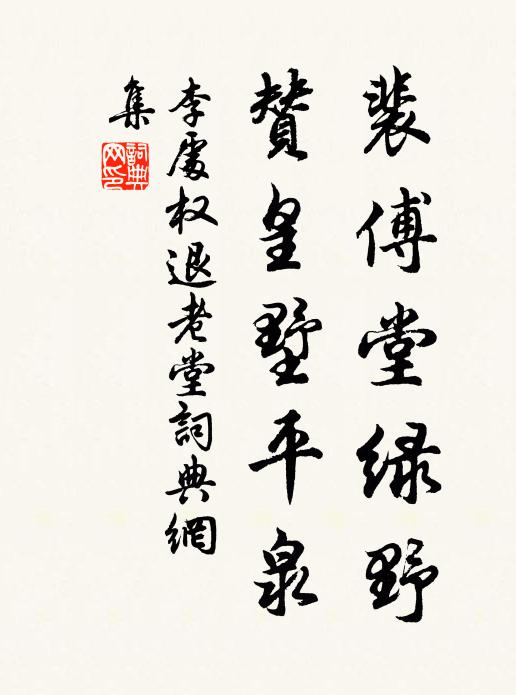 裴傅堂绿野
贊皇墅平泉
李處权退老堂詞典網
集
詞典
网印